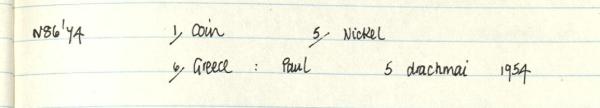 N86'44 1/ Coin 5/ Nickel
6/ Greece : Paul 5 drachmai 1954